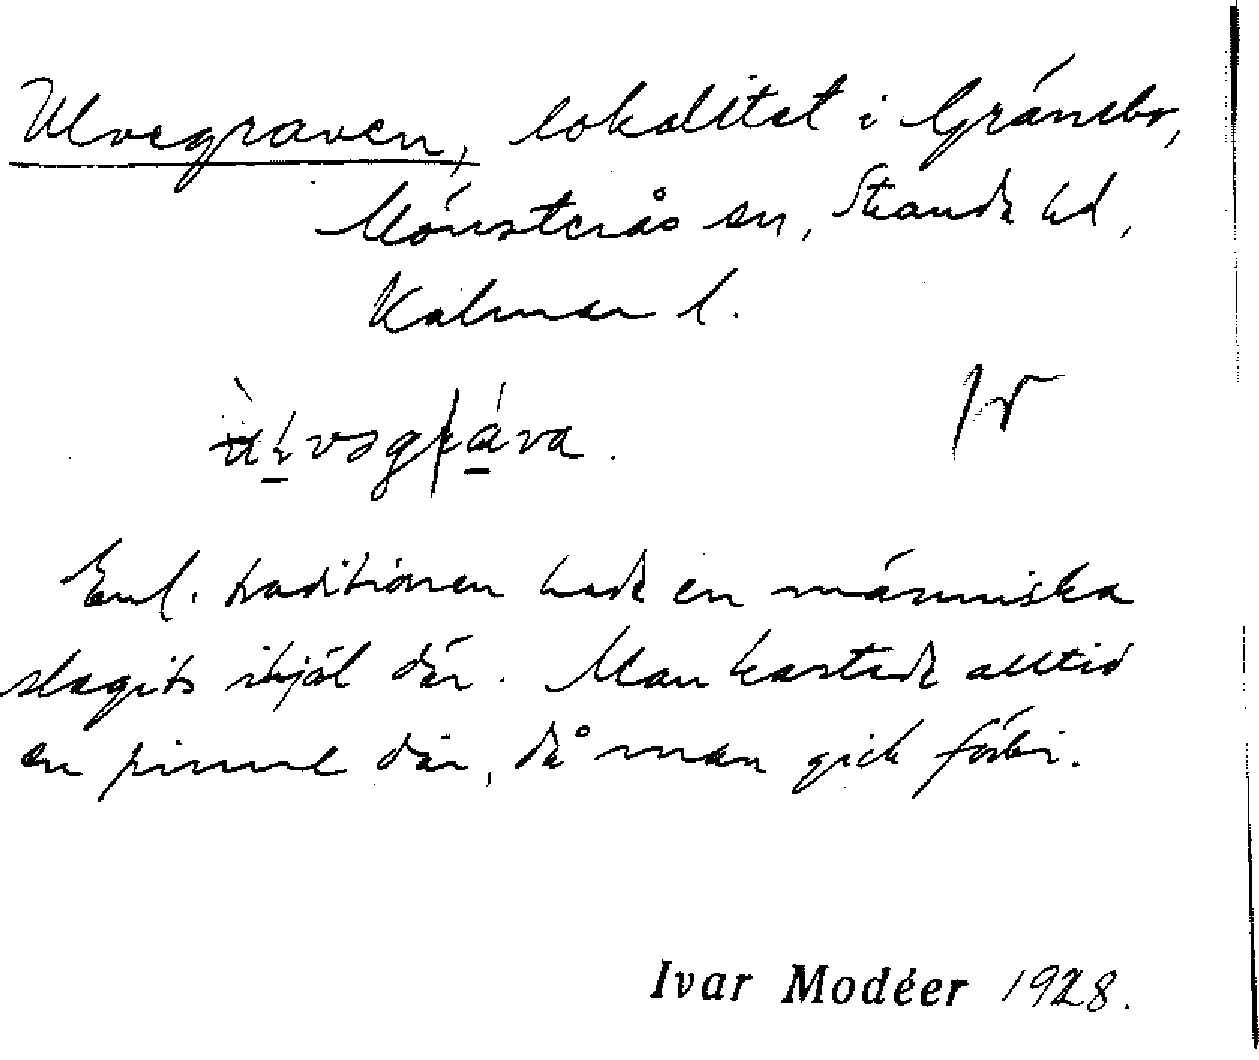 Ulvegraven, lokalitet i Gränsbo,
Mönsterås sn, Stranda hd,
Kalmar l.
Enl. traditionen hade en människa
slagits ihjäl där. Man kastade alltid
en pinne där, då man gick förbi.
Ivar Modéer 1928.